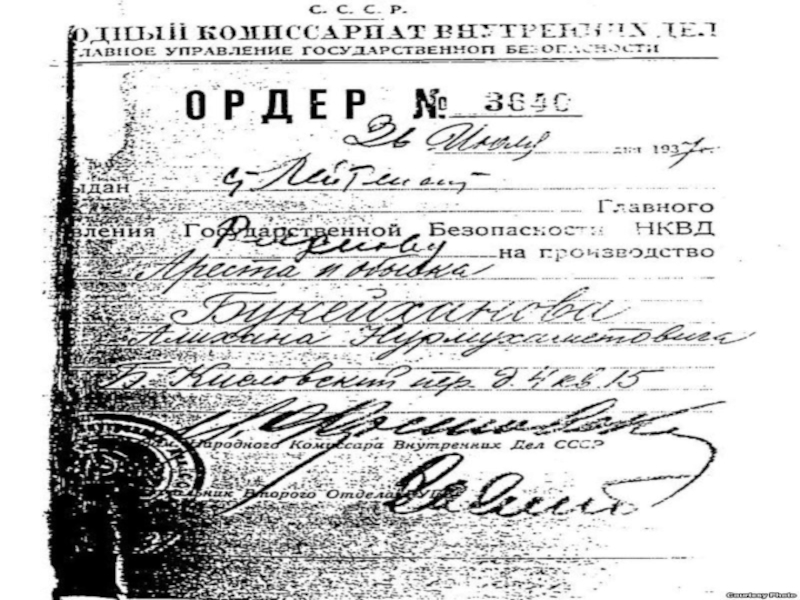 С. С. С. Р.
ОДНЫЙ КОМИССАРИАТ ВНУТРЕННИХ ДЕЛ
ГЛАВНОЕ УПРАВЛЕНИЕ ГОСУДАРСТВЕННОЙ БЕЗОПАСНОСТИ
ОРДЕР № 3640
26 Июля дня 1937 г.
ыдан ст Лейтенант
Главного
вления Государственной Безопасности НКВД
на производство
Ареста и обыска
Букейханова
Алихана Нурмухаметовича
Б. Кисловский пер. д. 4 кв. 15
Народного Комиссара Внутренних Дел СССР
альник Второго Отдела
Courtesy Photo